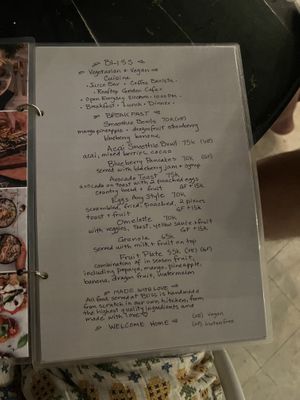 BLISS
Vegetarian + Vegan
Cuisine
• Juice Bar • Coffee Barista •
Rooftop Garden Cafe
• Open Everyday
• Breakfast • Lunch • Dinner •
BREAKFAST
Smoothie Bowls 70K (VE)
mango pineapple • dragonfruit strawberry
blueberry banana
Acai Smoothie Bowl 75K (VE)
acai, mixed berries, cacao
Blueberry Pancakes 70K (GF)
served with blueberry jam + syrup
Avocado Toast 75K
avocado on toast with 2 poached eggs
country bread + fruit GF +15K
Eggs Any Style 70K
scrambled, fried, poached, 2 pieces
toast + fruit GF +15K
Omelete 70K
with veggies, toast, yellow sauce + fruit
GF +15K
Granola 65K
served with milk + fruit on top
Fruit Plate 55K (VE) (GF)
combination of in season fruit,
including papaya, mango, pineapple,
banana, dragon fruit, watermelon
MADE WITH LOVE
All food served at BLISS is handmade
from scratch in our own kitchen, from
the highest quality ingredients and
made with love
WELCOME HOME
(VE) vegan
(GF) gluten free